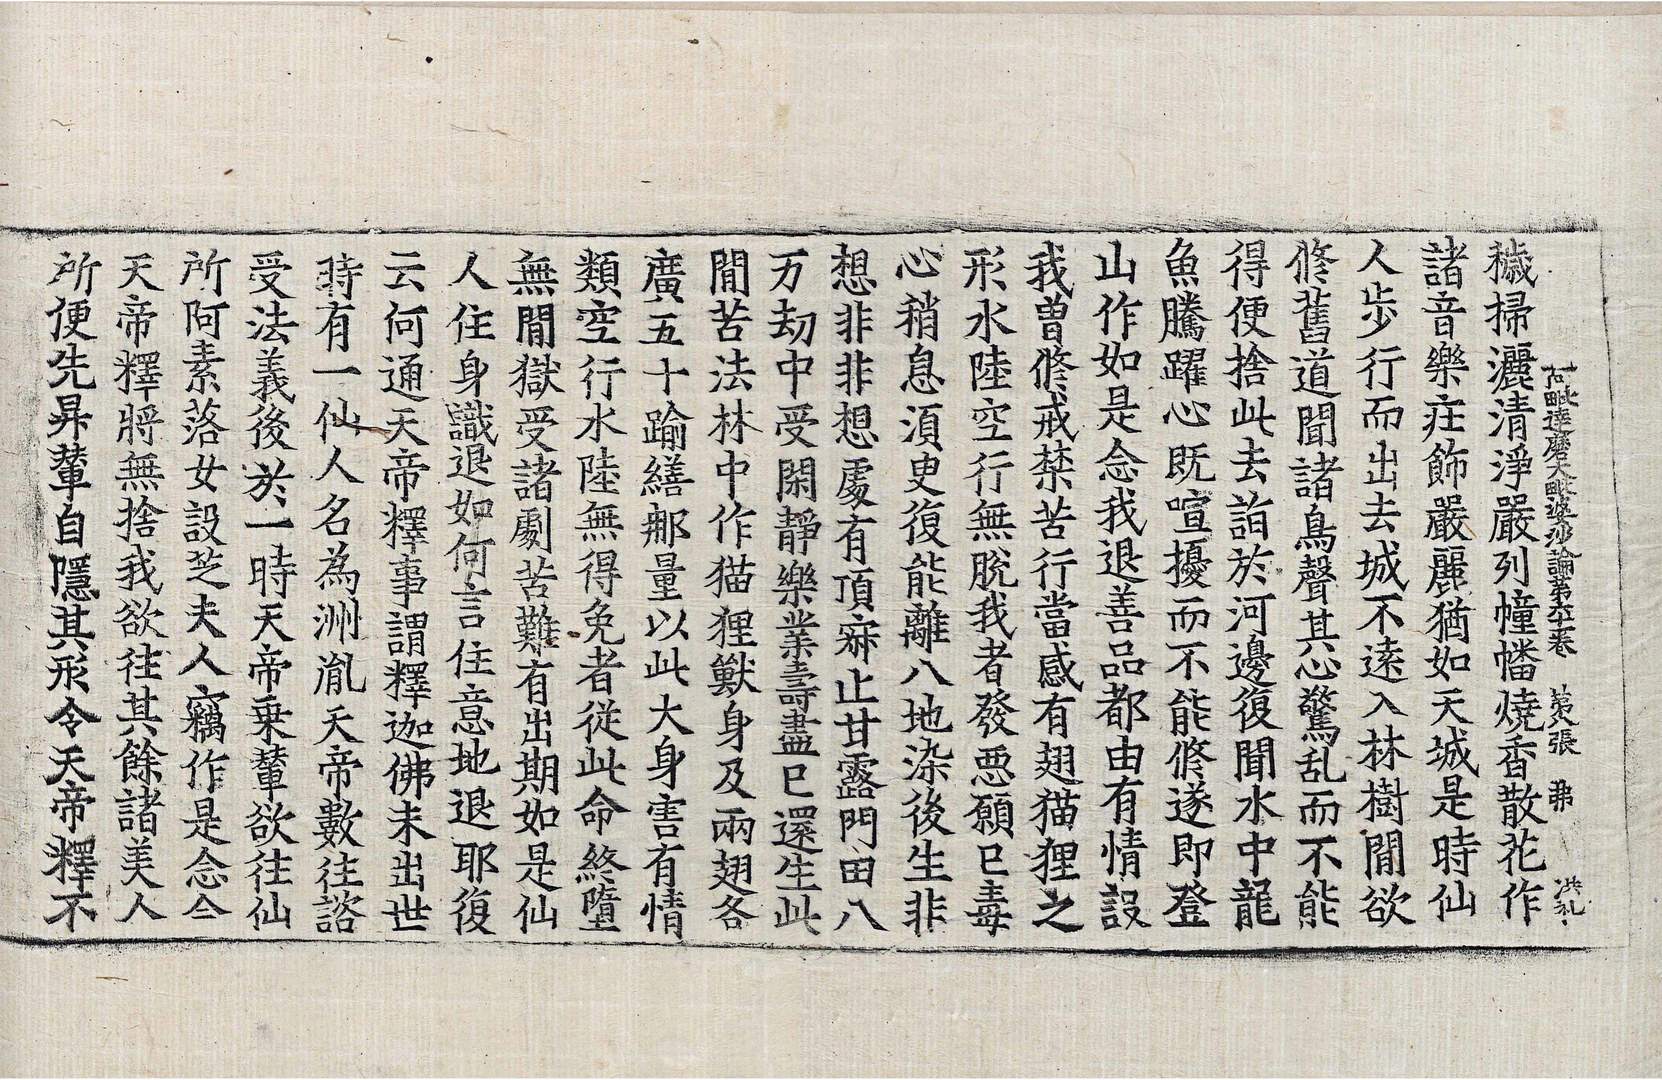 阿毗達磨大毗婆沙論第六十一卷　第八張　弗　洪礼
穢掃灑清淨嚴列幢幡燒香散花作
諸音樂庄飾嚴麗猶如天城是時仙
人步行而出去城不遠入林樹閒欲
修舊道聞諸鳥聲其心驚乱而不能
得便捨此去詣於河邊復聞水中龍
魚騰躍心既喧擾而不能修遂即登
山作如是念我退善品都由有情設
我曾修戒禁苦行當感有翅猫狸之
形水陸空行無脫我者發惡願已毒
心稍息須臾復能離八地染後生非
想非非想處有頂寂止甘露門田八
万劫中受閑靜樂業壽盡已還生此
閒苦法林中作猫狸獸身及兩翅各
廣五十踰繕那量以此大身害有情
類空行水陸無得免者從此命終墮
無閒獄受諸劇苦難有出期如是仙
人住身識退如何言住意地退耶復
云何通天帝釋事謂釋迦佛未出世
時有一仙人名為洲胤天帝數往諮
受法義後於一時天帝乗輦欲往仙
所阿素落女設芝夫人竊作是念今
天帝釋將無捨我欲往其餘諸美人
所便先昇輦自隱其形令天帝釋不